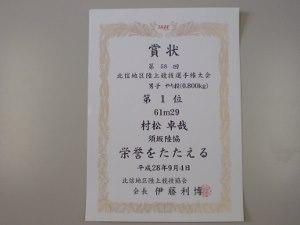 賞状
第58回
北信地区陸上競技選手権大会
男子 やり投(0.800kg)
第1位
61m29
村松 卓哉
須坂陸協
栄誉をたたえる
平成28年9月4日
北信地区陸上競技協会
会長 伊藤利博